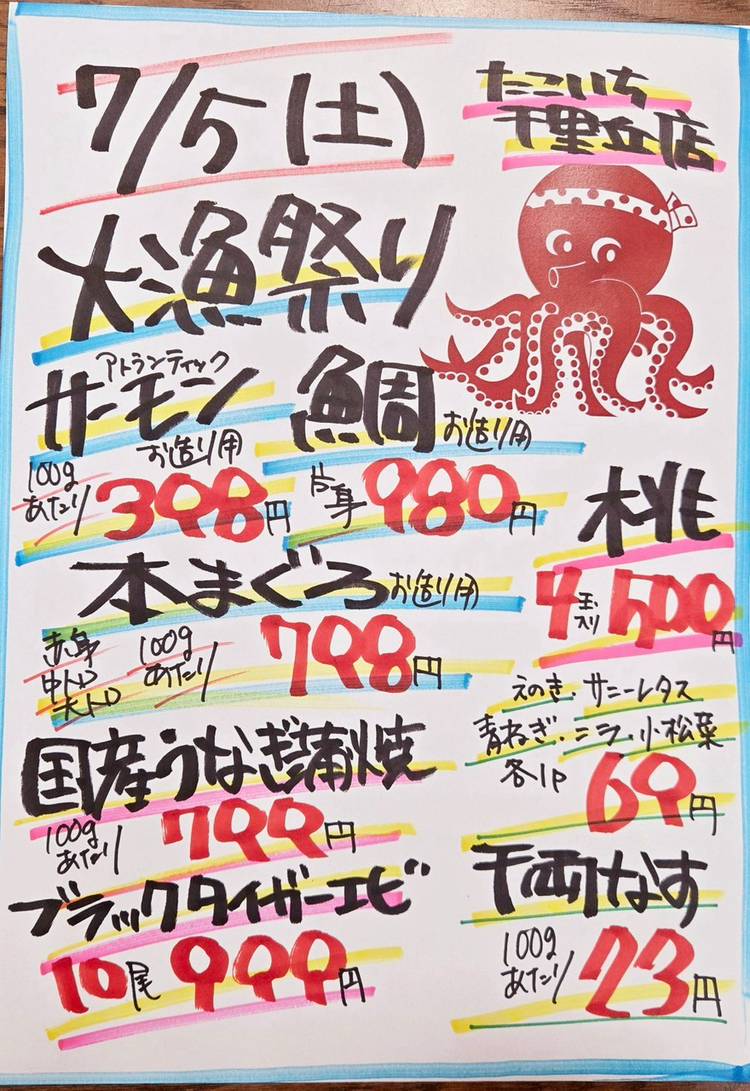 7/5(土)
たこいち
千里丘店
大漁祭り
アトランティック
サーモン
お造り用
100g
あたり
398円
鯛
お造り用
片身
980円
桃
4玉入り
500円
本まぐろ
お造り用
赤身
中トロ
大トロ
100g
あたり
798円
えのき・サニーレタス
青ねぎ・ニラ・小松菜
各1P
69円
国産うなぎ蒲焼
100g
あたり
799円
千両なす
100g
あたり
23円
ブラックタイガーエビ
10尾
999円